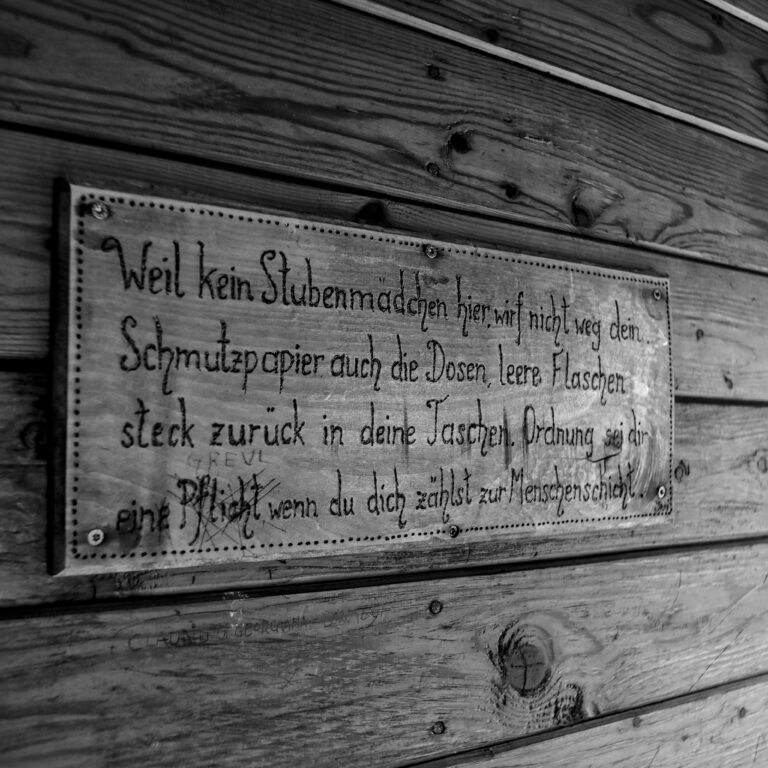 Weil kein Stubenmädchen hier, wirf nicht weg dein
Schmutzpapier auch die Dosen, leere Flaschen
steck zurück in deine Taschen. Ordnung sei dir
GREUL
eine Pflicht, wenn du dich zählst zur Menschenschicht.
CLAUDIU GEORGIANA